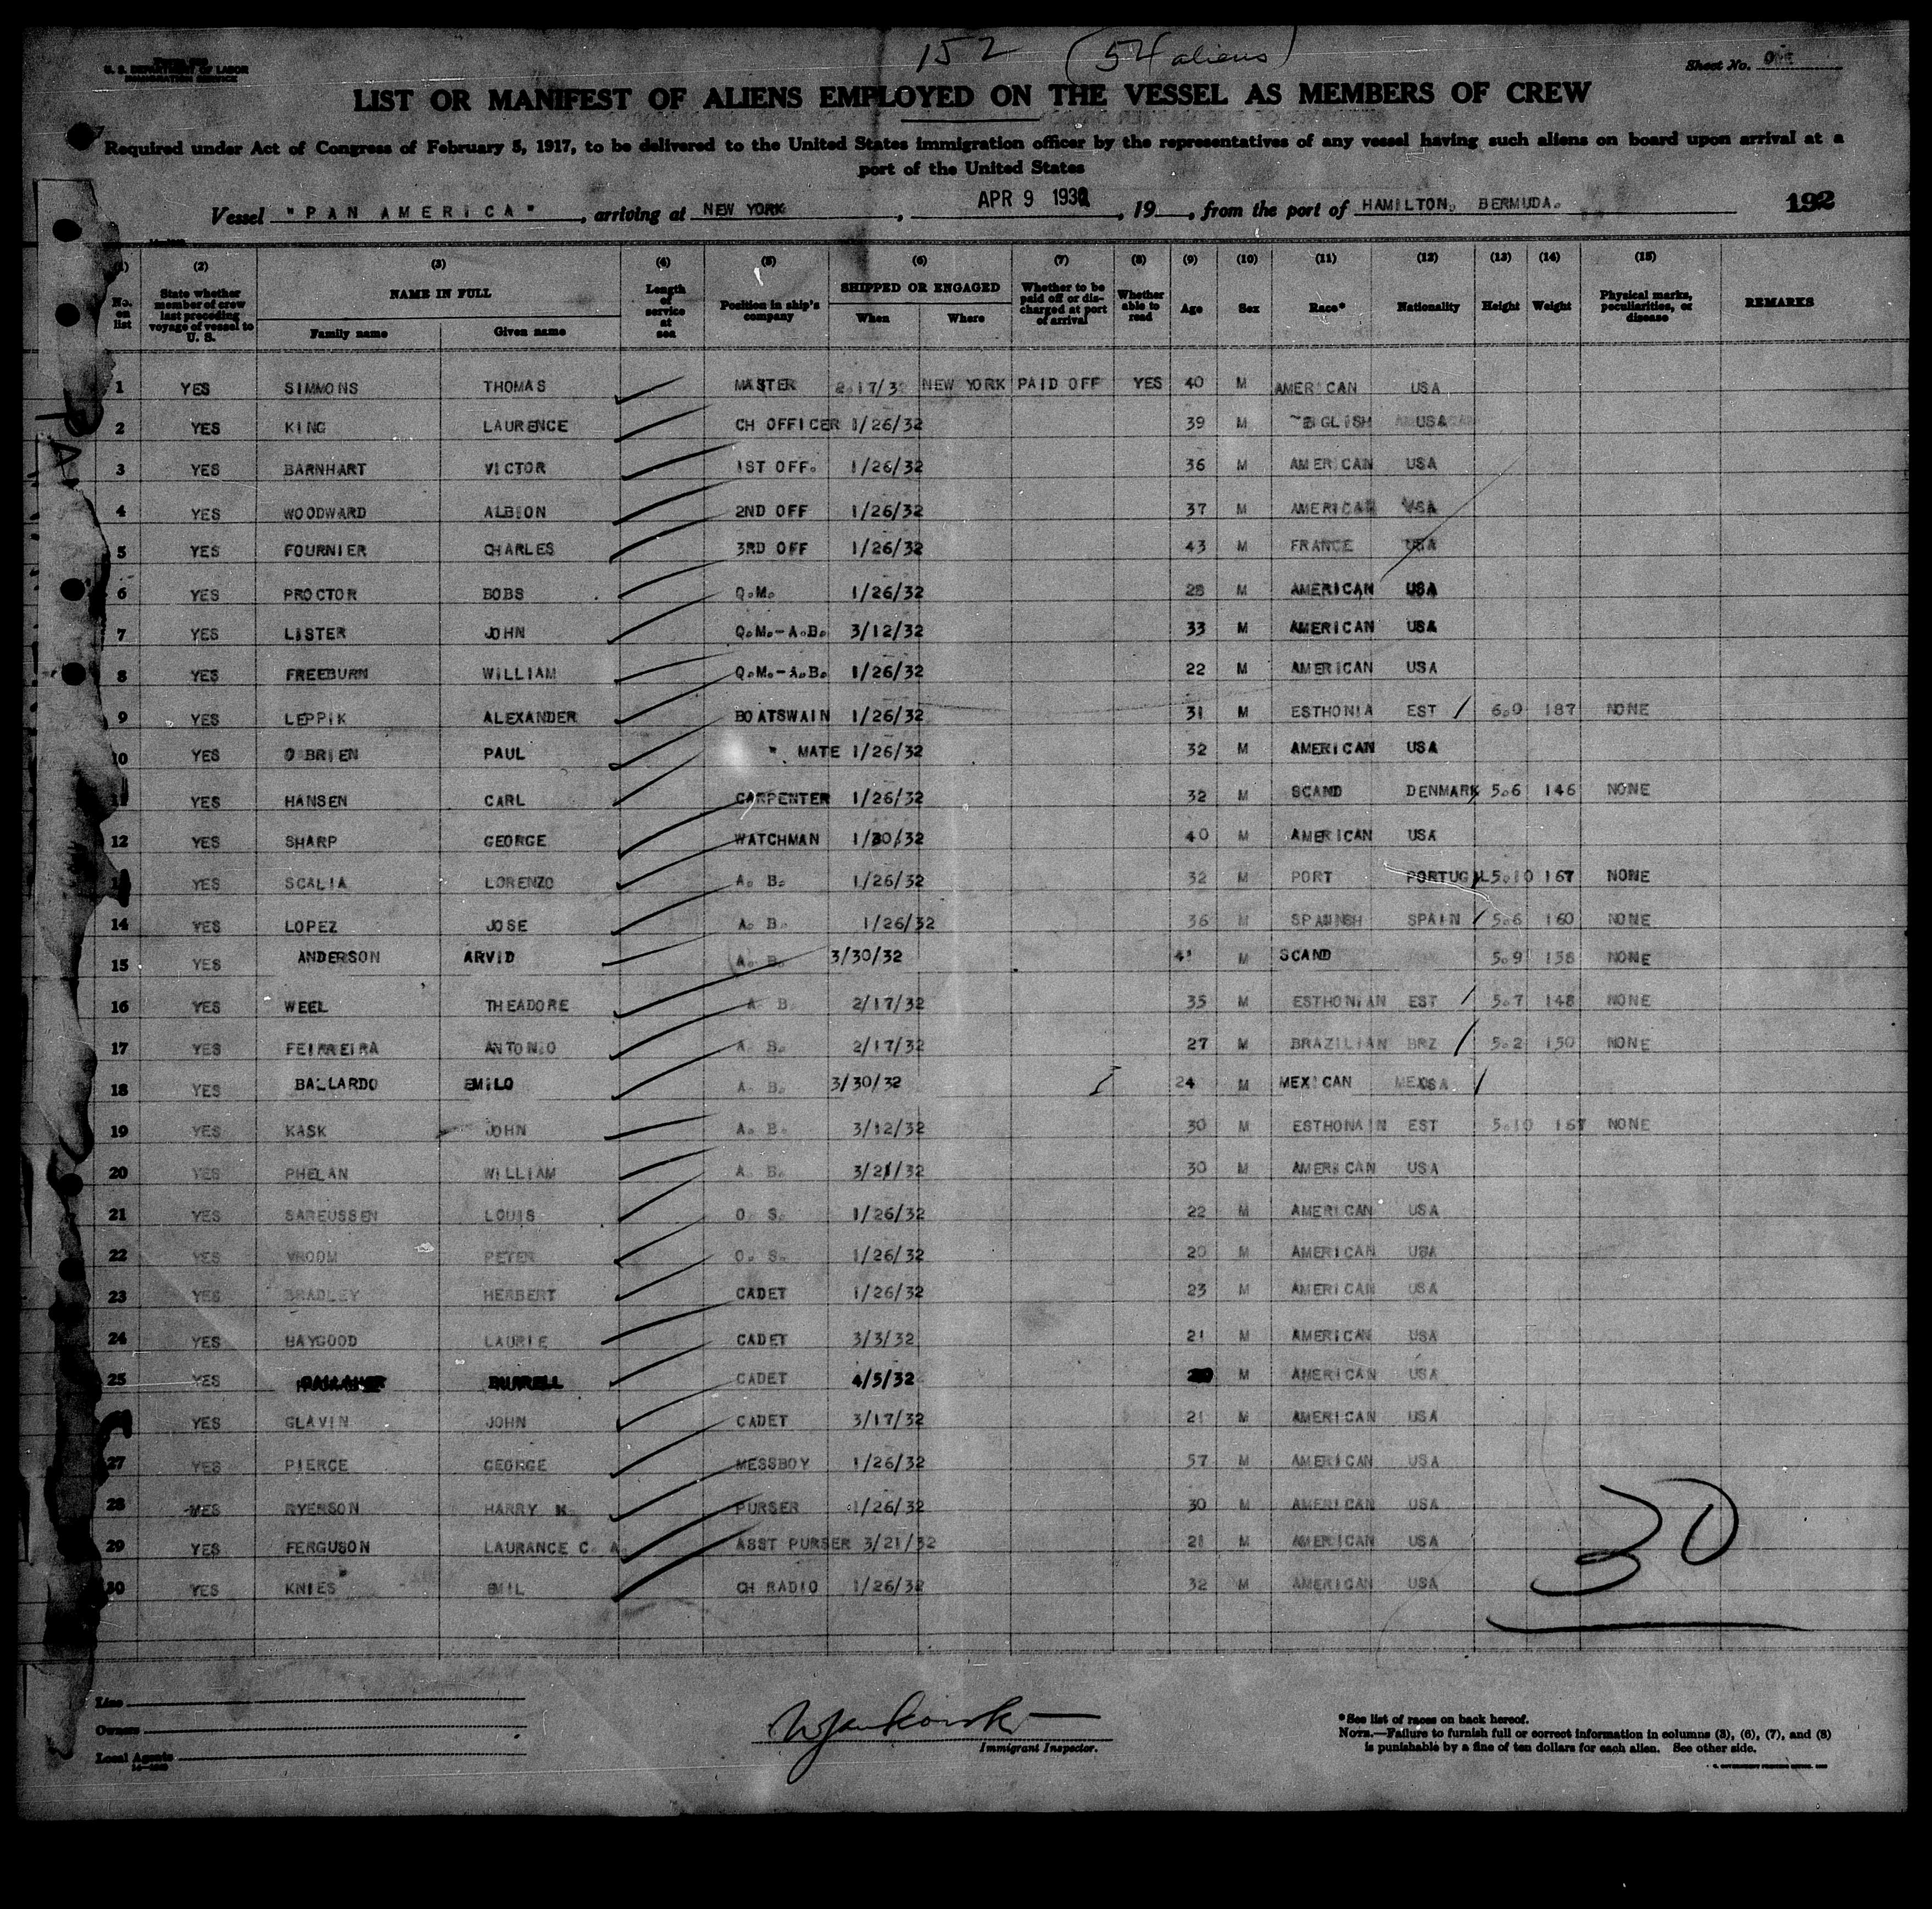 152 (54 aliens)
U. S. DEPARTMENT OF LABOR
IMMIGRATION SERVICE
Sheet No.
LIST OR MANIFEST OF ALIENS EMPLOYED ON THE VESSEL AS MEMBERS OF CREW
Required under Act of Congress of February 5, 1917, to be delivered to the United States immigration officer by the representatives of any vessel having such aliens on board upon arrival at a
port of the United States
Vessel "PAN AMERICA", arriving at NEW YORK, APR 9 1932, 19, from the port of HAMILTON, BERMUDA. 192
(1) (2) (3) (4) (5) (6) (7) (8) (9) (10) (11) (12) (13) (14) (15)
No. on list State whether member of crew last preceding voyage of vessel to U. S. NAME IN FULL Family name Given name Length of service at sea Position in ship's company SHIPPED OR ENGAGED When Where Whether to be paid off or discharged at port of arrival Whether able to read Age Sex Race* Nationality Height Weight Physical marks, peculiarities, or disease REMARKS
1 YES SIMMONS THOMAS MASTER 2.17/32 NEW YORK PAID OFF YES 40 M AMERICAN USA
2 YES KING LAURENCE CH OFFICER 1/26/32 39 M USA
3 YES BARNHART VICTOR 1ST OFF. 1/26/32 36 M AMERICAN USA
4 YES WOODWARD ALBION 2ND OFF 1/26/32 37 M AMERICAN USA
5 YES FOURNIER CHARLES 3RD OFF 1/26/32 43 M FRANCE USA
6 YES PROCTOR BOBS Q.M. 1/26/32 28 M AMERICAN USA
7 YES LISTER JOHN Q.M.-A.B. 3/12/32 33 M AMERICAN USA
8 YES FREEBURN WILLIAM Q.M.-A.B. 1/26/32 22 M AMERICAN USA
9 YES LEPPIK ALEXANDER BOATSWAIN 1/26/32 31 M ESTHONIA EST / 6.0 187 NONE
10 YES O BRIEN PAUL " MATE 1/26/32 32 M AMERICAN USA
11 YES HANSEN CARL CARPENTER 1/26/32 32 M SCAND DENMARK 5.6 146 NONE
12 YES SHARP GEORGE WATCHMAN 1/30/32 40 M AMERICAN USA
13 YES SCALIA LORENZO A. B. 1/26/32 32 M PORT PORTUGAL 5.10 167 NONE
14 YES LOPEZ JOSE A. B. 1/26/32 36 M SPANISH SPAIN / 5.6 160 NONE
15 YES ANDERSON ARVID A. B. 3/30/32 41 M SCAND 5.9 158 NONE
16 YES WEEL THEADORE A. B. 2/17/32 35 M ESTHONIAN EST / 5.7 148 NONE
17 YES FEIRREIRA ANTONIO A. B. 2/17/32 27 M BRAZILIAN BRZ / 5.2 150 NONE
18 YES BALLARDO EMILO A. B. 3/30/32 24 M MEXICAN /
19 YES KASK JOHN A. B. 3/12/32 30 M ESTHONAIN EST 5.10 167 NONE
20 YES PHELAN WILLIAM A. B. 3/21/32 30 M AMERICAN USA
21 YES SAREUSSEN LOUIS O. S. 1/26/32 22 M AMERICAN USA
22 YES VROOM PETER O. S. 1/26/32 20 M AMERICAN USA
23 YES BRADLEY HERBERT CADET 1/26/32 23 M AMERICAN USA
24 YES HAYGOOD LAURIE CADET 3/3/32 21 M AMERICAN USA
25 YES CADET 4/5/32 M AMERICAN USA
YES GLAVIN JOHN CADET 3/17/32 21 M AMERICAN USA
27 YES PIERCE GEORGE MESSBOY 1/26/32 57 M AMERICAN USA
28 YES RYERSON HARRY PURSER 1/26/32 30 M AMERICAN USA
29 YES FERGUSON LAURANCE C. A. ASST PURSER 3/21/32 21 M AMERICAN USA
30 YES KNIES EMIL CH RADIO 1/26/32 32 M AMERICAN USA
30
Line
Owners
Local Agents
Immigrant Inspector.
*See list of races on back hereof.
NOTE.—Failure to furnish full or correct information in columns (3), (6), (7), and (8)
is punishable by a fine of ten dollars for each alien. See other side.